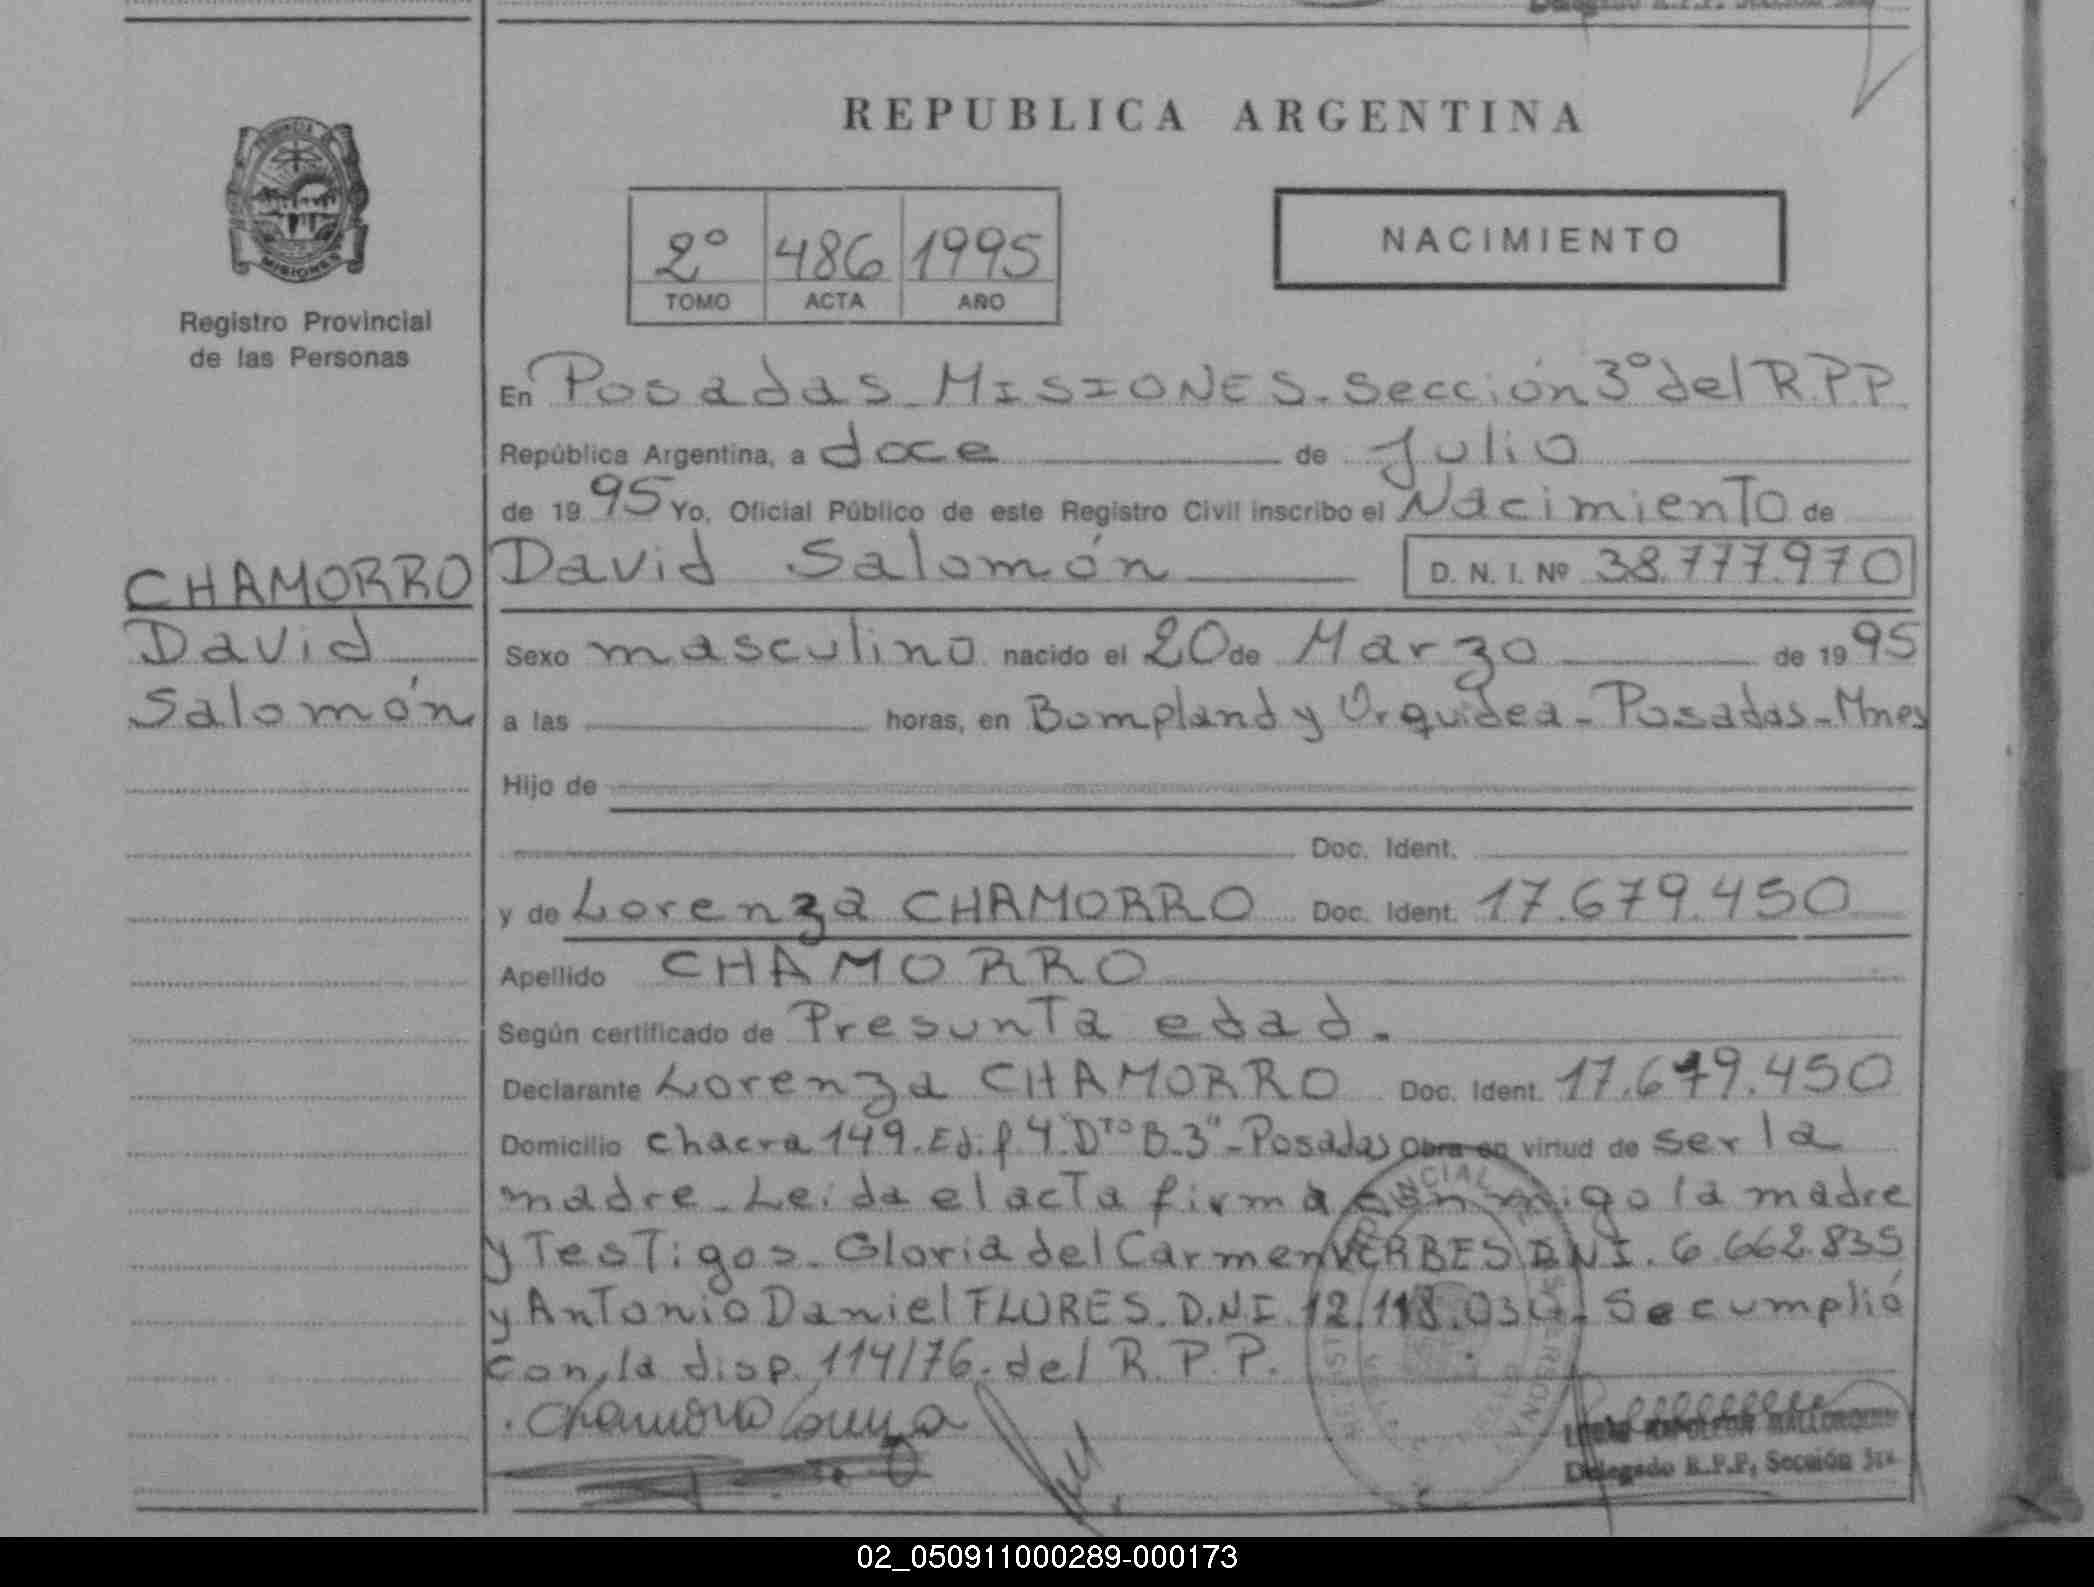 REPUBLICA ARGENTINA
MISIONES
Registro Provincial
de las Personas
2° 486 1995
TOMO ACTA AÑO
NACIMIENTO
En Posadas MISIONES. Sección 3° del R.P.P.
República Argentina, a doce de Julio
de 1995 Yo, Oficial Público de este Registro Civil inscribo el Nacimiento de
CHAMORRO
David
Salomón
David Salomón D. N. I. Nº 38.777.970
Sexo masculino nacido el 20 de Marzo de 1995
a las horas, en Bompland y Orquidea - Posadas - Mnes
Hijo de
Doc. Ident.
y de Lorenza CHAMORRO Doc. Ident. 17.679.450
Apellido CHAMORRO
Según certificado de Presunta edad.
Declarante Lorenza CHAMORRO Doc. Ident. 17.679.450
Domicilio chacra 149. Edif. 4. "Dto B-3" - Posadas Obra en virtud de ser la
madre. Leida el acta firma conmigo la madre
y Testigos. Gloria del Carmen VERBES D.N.I. 6.662.835
y Antonio Daniel FLORES. D.N.I. 12.118.034. Se cumplió
con la disp. 114/76. del R.P.P.
Chamorro Lorenza
NAPOLEON MALLORQUIN
Delegado R.P.P. Sección 3ra
02_050911000289-000173